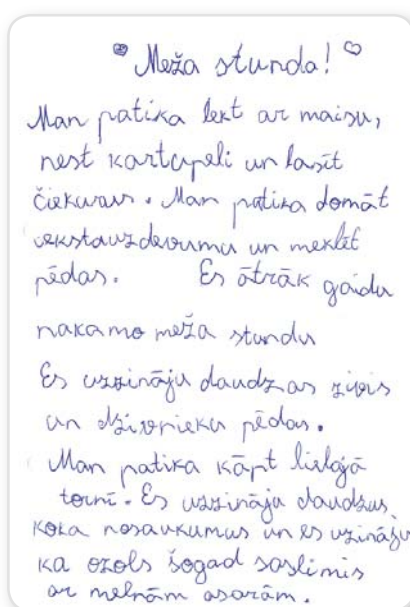 Meža stunda!
Man patika lekt ar maisu,
nest kartupeli un lasīt
čiekurus. Man patika domāt
uzdevumu un meklēt
pēdas. Es ātrāk gaidu
nakamo meža stundu
Es uzzināju daudzas zivis
un dzīvnieku pēdas.
Man patika kāpt lielajā
tornī. Es uzzināju daudzus
koka nosaukumus un es uzināju
ka ozols šogad saslimis
ar melnām asarām.